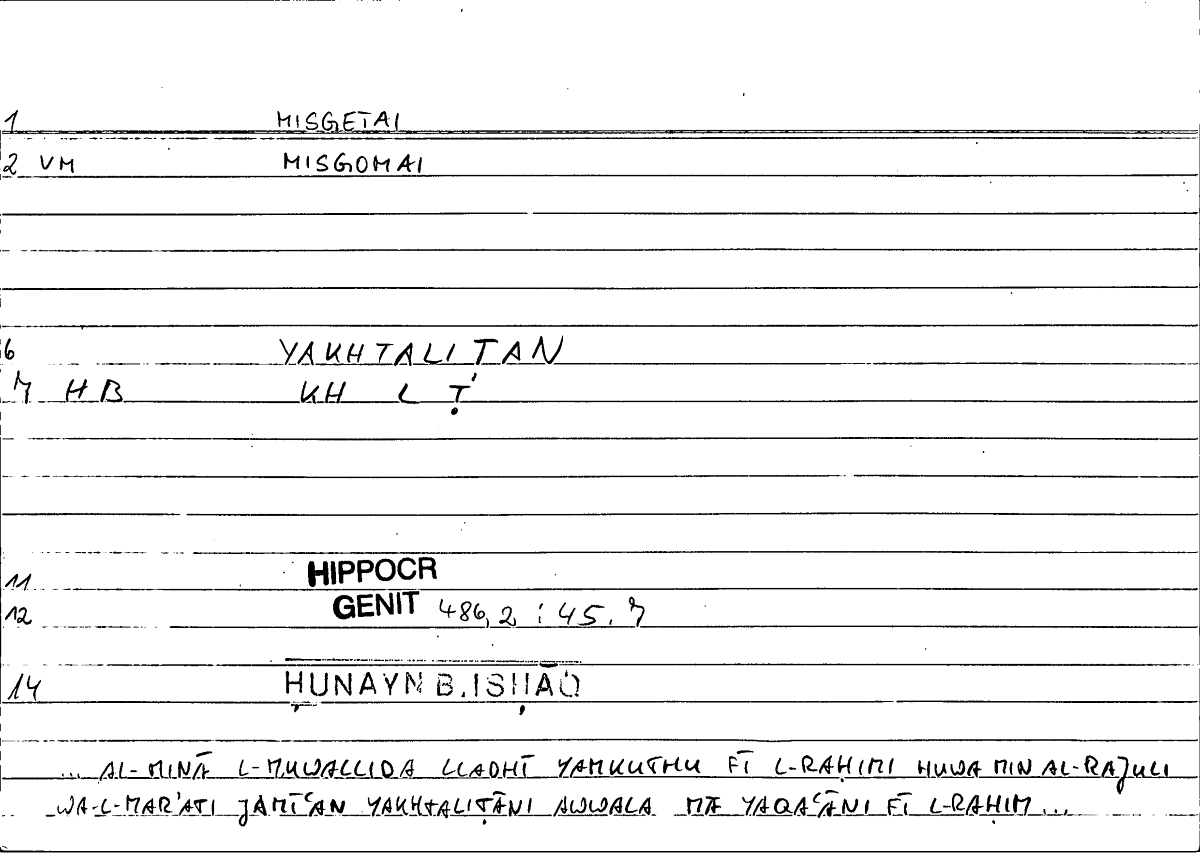 1 MISGETAI
2 VM MISGOMAI
6 YAKHTALITAN
7 HB KH L Ṭ
11 HIPPOCR
12 GENIT 486,2 : 45.7
14 ḤUNAYN B. ISḤĀQ
... AL-MINĀ L-MUWALLIDA LLADHĪ YAMKUTHU FĪ L-RAḤIMI HUWA MIN AL-RAJULI
WA-L-MAR'ATI JAMĪʿAN YAKHTALIṬĀNI AWWALA MĀ YAQAʿĀNI FĪ L-RAḤIM...